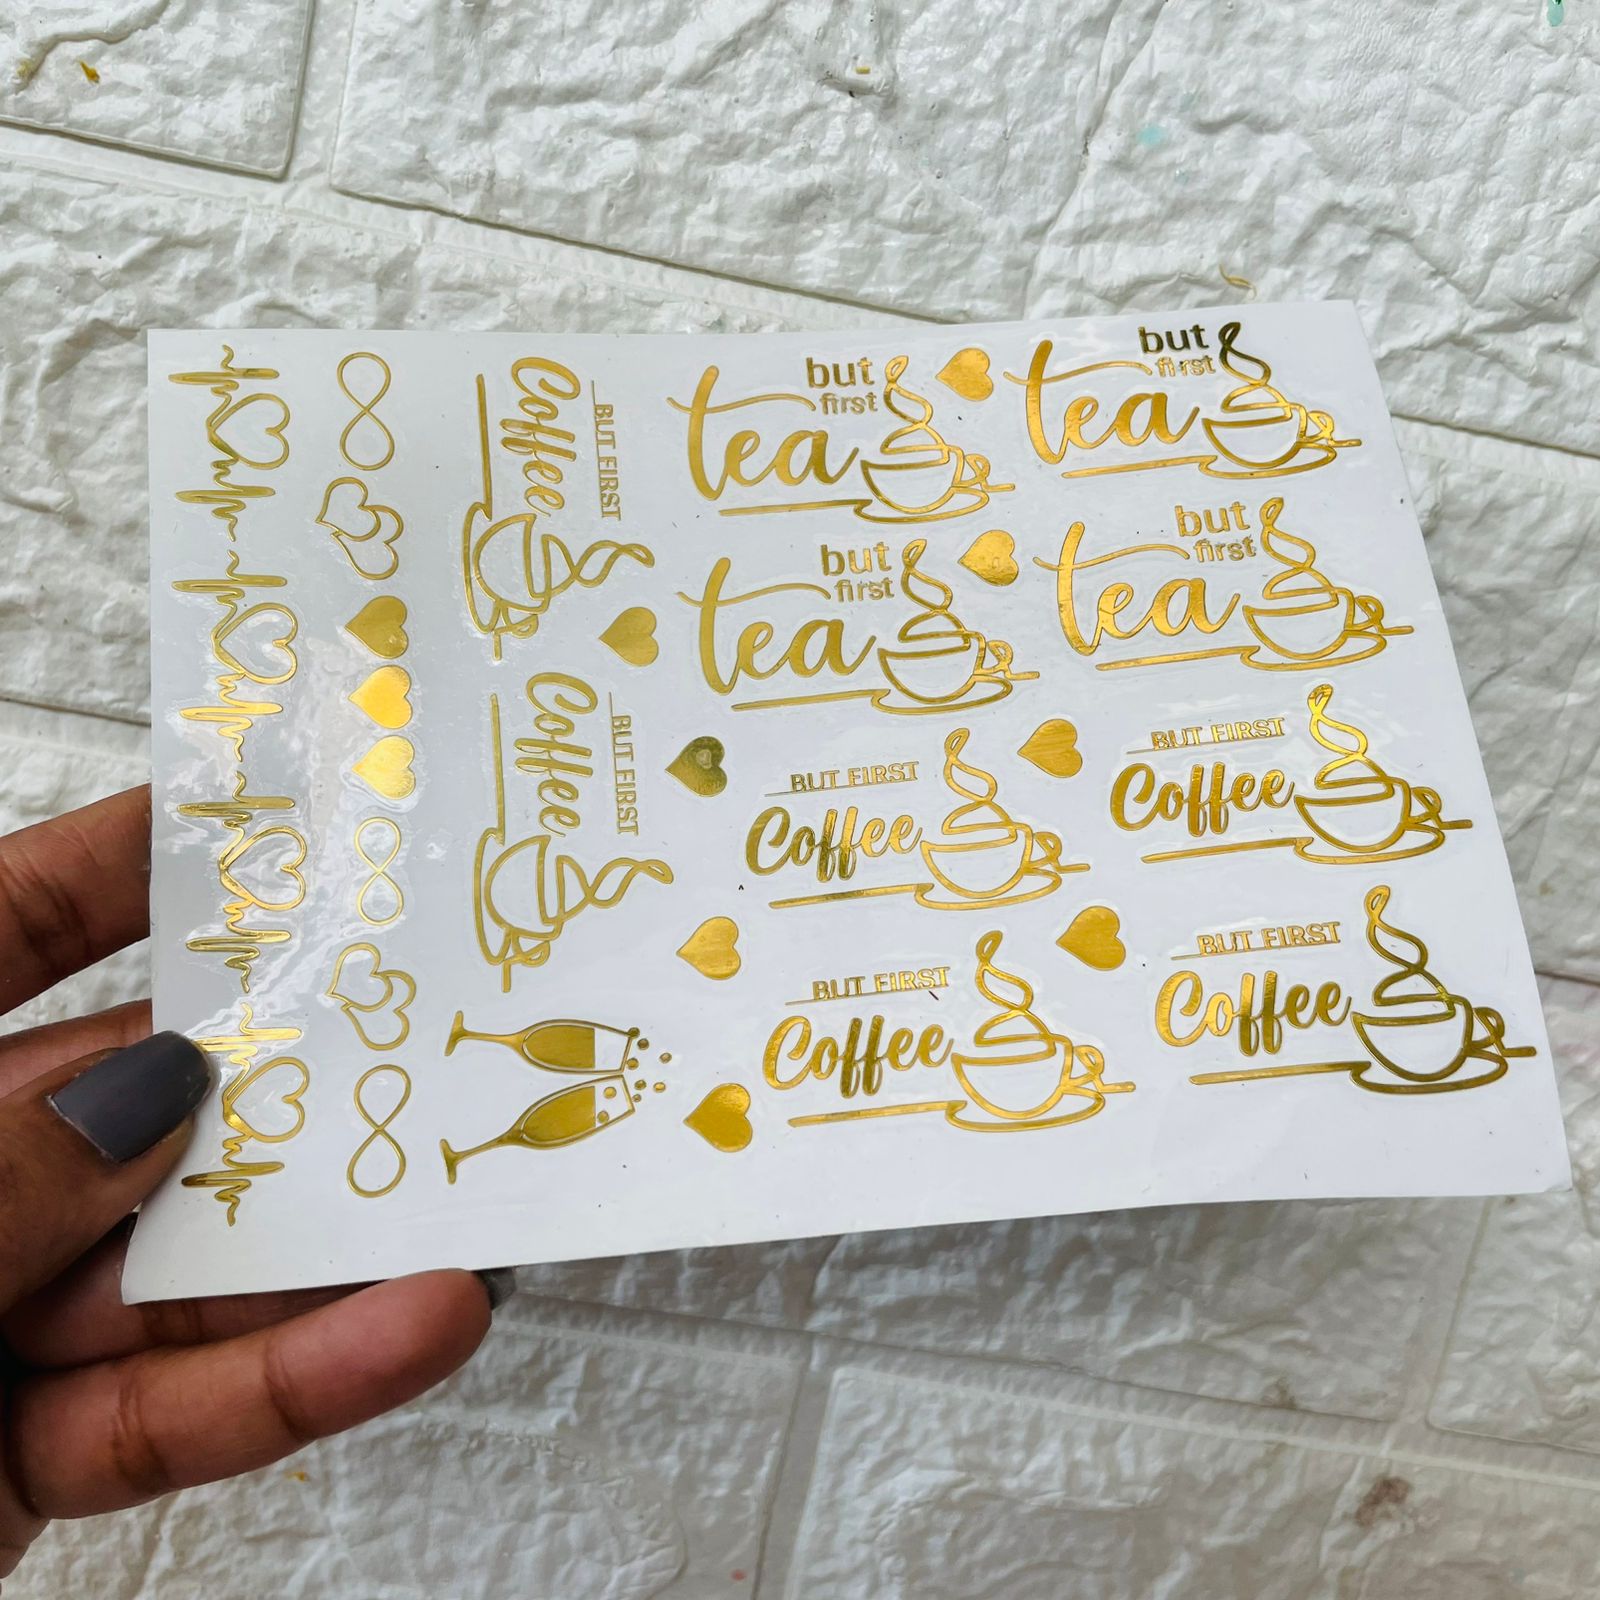 but
first
tea
but
first
tea
but
first
tea
but
first
tea
BUT FIRST
Coffee
BUT FIRST
Coffee
BUT FIRST
Coffee
BUT FIRST
Coffee
BUT FIRST
Coffee
BUT FIRST
Coffee